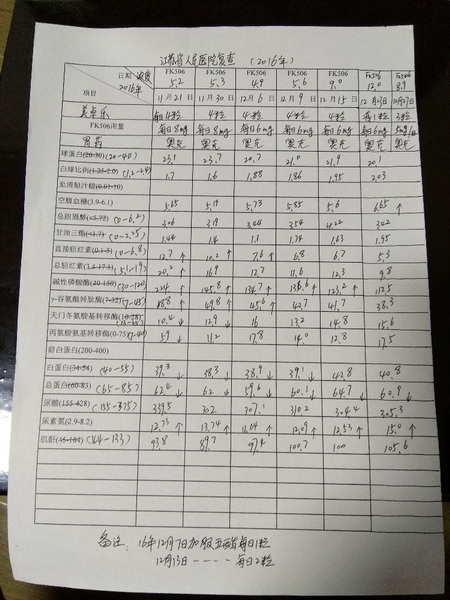 江苏省人民医院复查 (2016年)
日期 浓度 FK506 FK506 FK506 FK506 FK506 FK506 FK506
2016年 5.2 5.3 4.9 5.6 9.0 12.0 8.9
项目 11月21日 11月30日 12月6日 12月9日 12月15日 12月27日
美卓乐 每日4粒 4粒 4粒 4粒 4粒
FK506用量 每日8mg 每日8mg 每日6mg 每日6mg 每日6mg 每日6mg
球蛋白(20-30) (20-40) 23.1 23.7 20.7 21.0 21.9 20.1
白球比例(1.25-2.0) (1.2-2.4) 1.7 1.6 1.88 1.86 1.95 2.03
空腹血糖(3.9-6.1) 5.65 5.19 5.73 5.85 5.6 6.65 ↑
总胆固醇 (0-6.2) 3.06 3.19 3.44 3.54 4.22 342
甘油三酯 (0-2.25) 1.44 1.4 1.1 1.74 1.63 1.95
直接胆红素 (0-6.8) 12.7 ↑ 10.2 ↑ 7.6 ↑ 6.8 6.7 5.3
总胆红素 (5.1-19) 20.2 ↑ 16.9 12.7 11.6 12.3 9.8
碱性磷酸酶(20-150) (30-120) 224 ↑ 145.8 ↑ 136.7 ↑ 136.6 ↑ 123.2 ↑ 112.5
γ-谷氨酰转肽酶 (7-45) 58.8 ↑ 49.8 ↑ 45.6 ↑ 42.7 41.7 38.3
天门冬氨酸基转移酶 10.4 ↓ 12.9 ↓ 16 13.2 14.8 15.6
丙氨酸氨基转移酶(0-75) 5.9 ↓ 11.2 17.8 14.0 12.8 17.5
前白蛋白(200-400)
白蛋白 (40-55) 39.3 ↓ 38.3 ↓ 38.9 ↓ 39.1 ↓ 42.8 40.8
总蛋白(60-83) (65-85) 62.4 ↓ 62 ↓ 59.6 ↓ 60.1 ↓ 64.7 ↓ 60.9 ↓
尿酸(155-428) (155-375) 339.5 302 307.1 310.2 304.4 305.3
尿素氮(2.9-8.2) 12.73 ↑ 13.74 ↑ 11.04 ↑ 12.09 ↑ 12.53 ↑ 15.0 ↑
肌酐 (44-133) 93.8 89.7 97.4 100.7 100 105.6
备注: 16年12月7日加服五酯每日1粒
12月13日 ---- 每日2粒